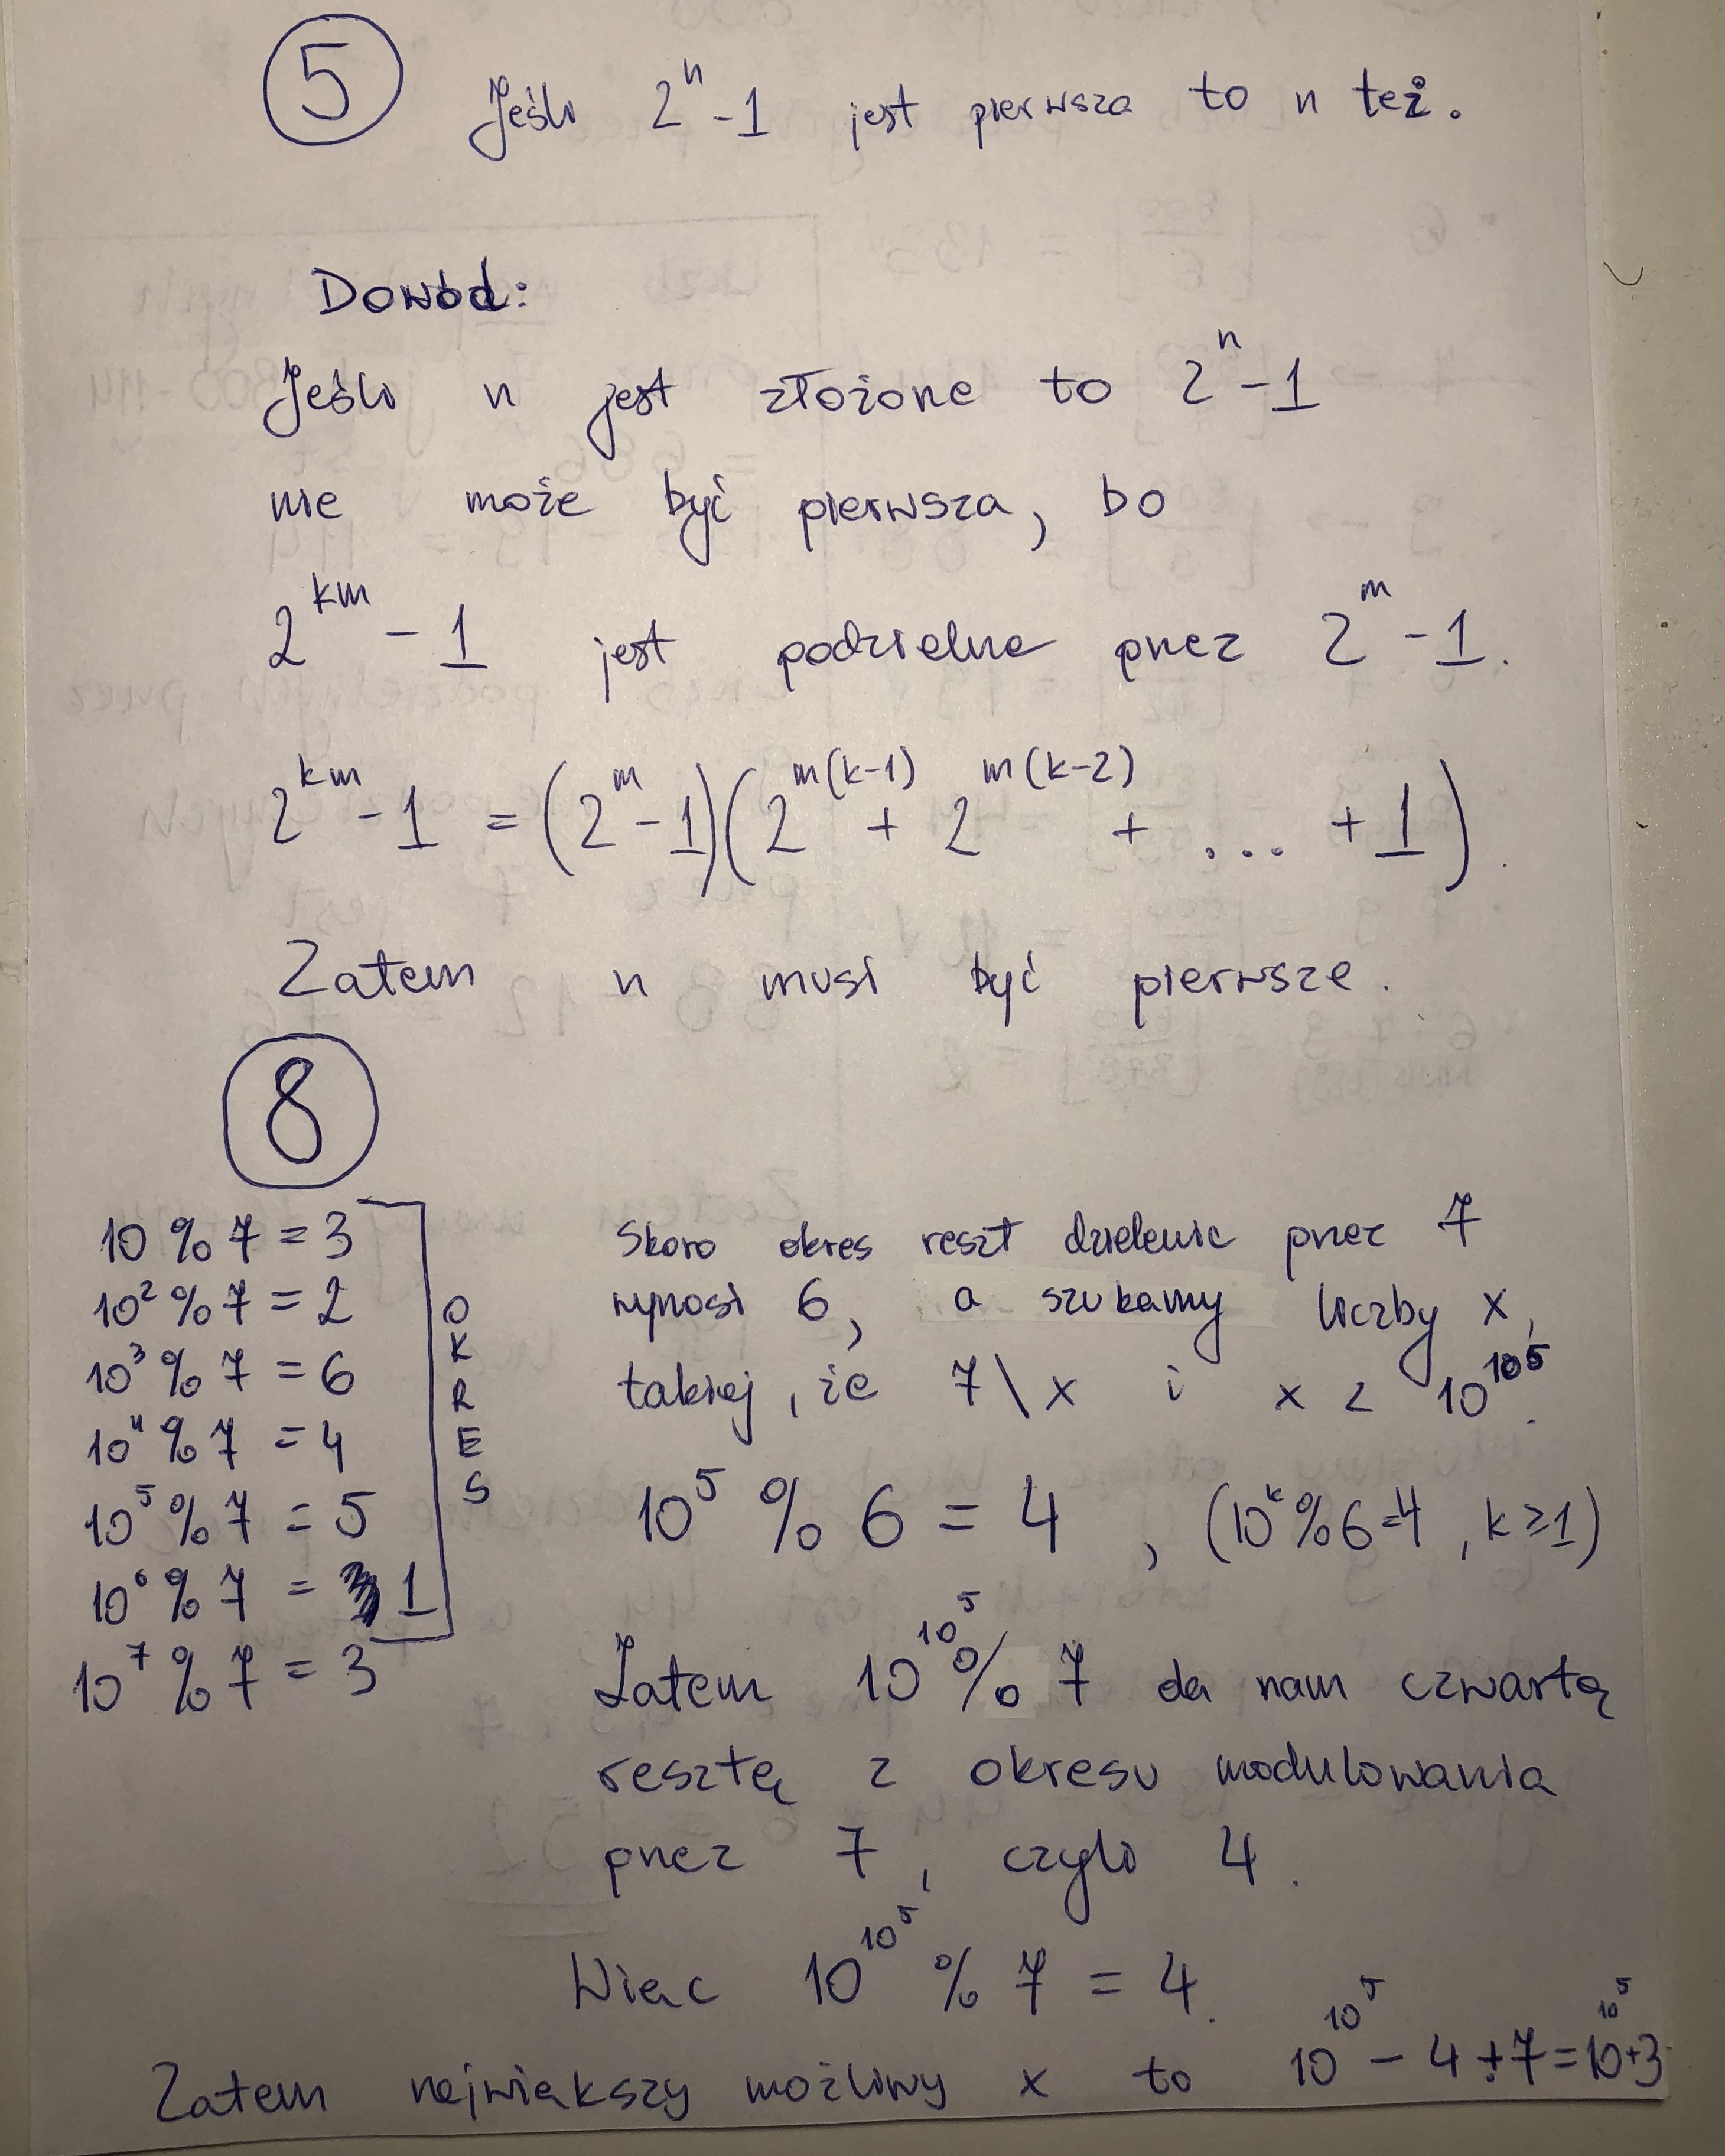 5 Jeśli 2^n - 1 jest pierwsza to n też.
Dowód:
Jeśli n jest złożone to 2^n - 1
nie może być pierwsza, bo
2^km - 1 jest podzielne przez 2^m - 1.
2^km - 1 = (2^m - 1)(2^m(k-1) + 2^m(k-2) + ... + 1).
Zatem n musi być pierwsze.
8
10 % 7 = 3
10^2 % 7 = 2
10^3 % 7 = 6
10^4 % 7 = 4
10^5 % 7 = 5
10^6 % 7 = 1
10^7 % 7 = 3
OKRES
Skoro okres reszt dzielenie przez 7
wynosi 6, a szukamy liczby x,
takiej, że 7 \ x i x < 10^10^5.
10^5 % 6 = 4 , (10^k % 6 = 4 , k ≥ 1)
Zatem 10^10^5 % 7 da nam czwartą
resztę z okresu modulowania
przez 7, czyli 4.
Więc 10^10^5 % 7 = 4.
Zatem największy możliwy x to 10^10^5 - 4 + 7 = 10^10^5 + 3